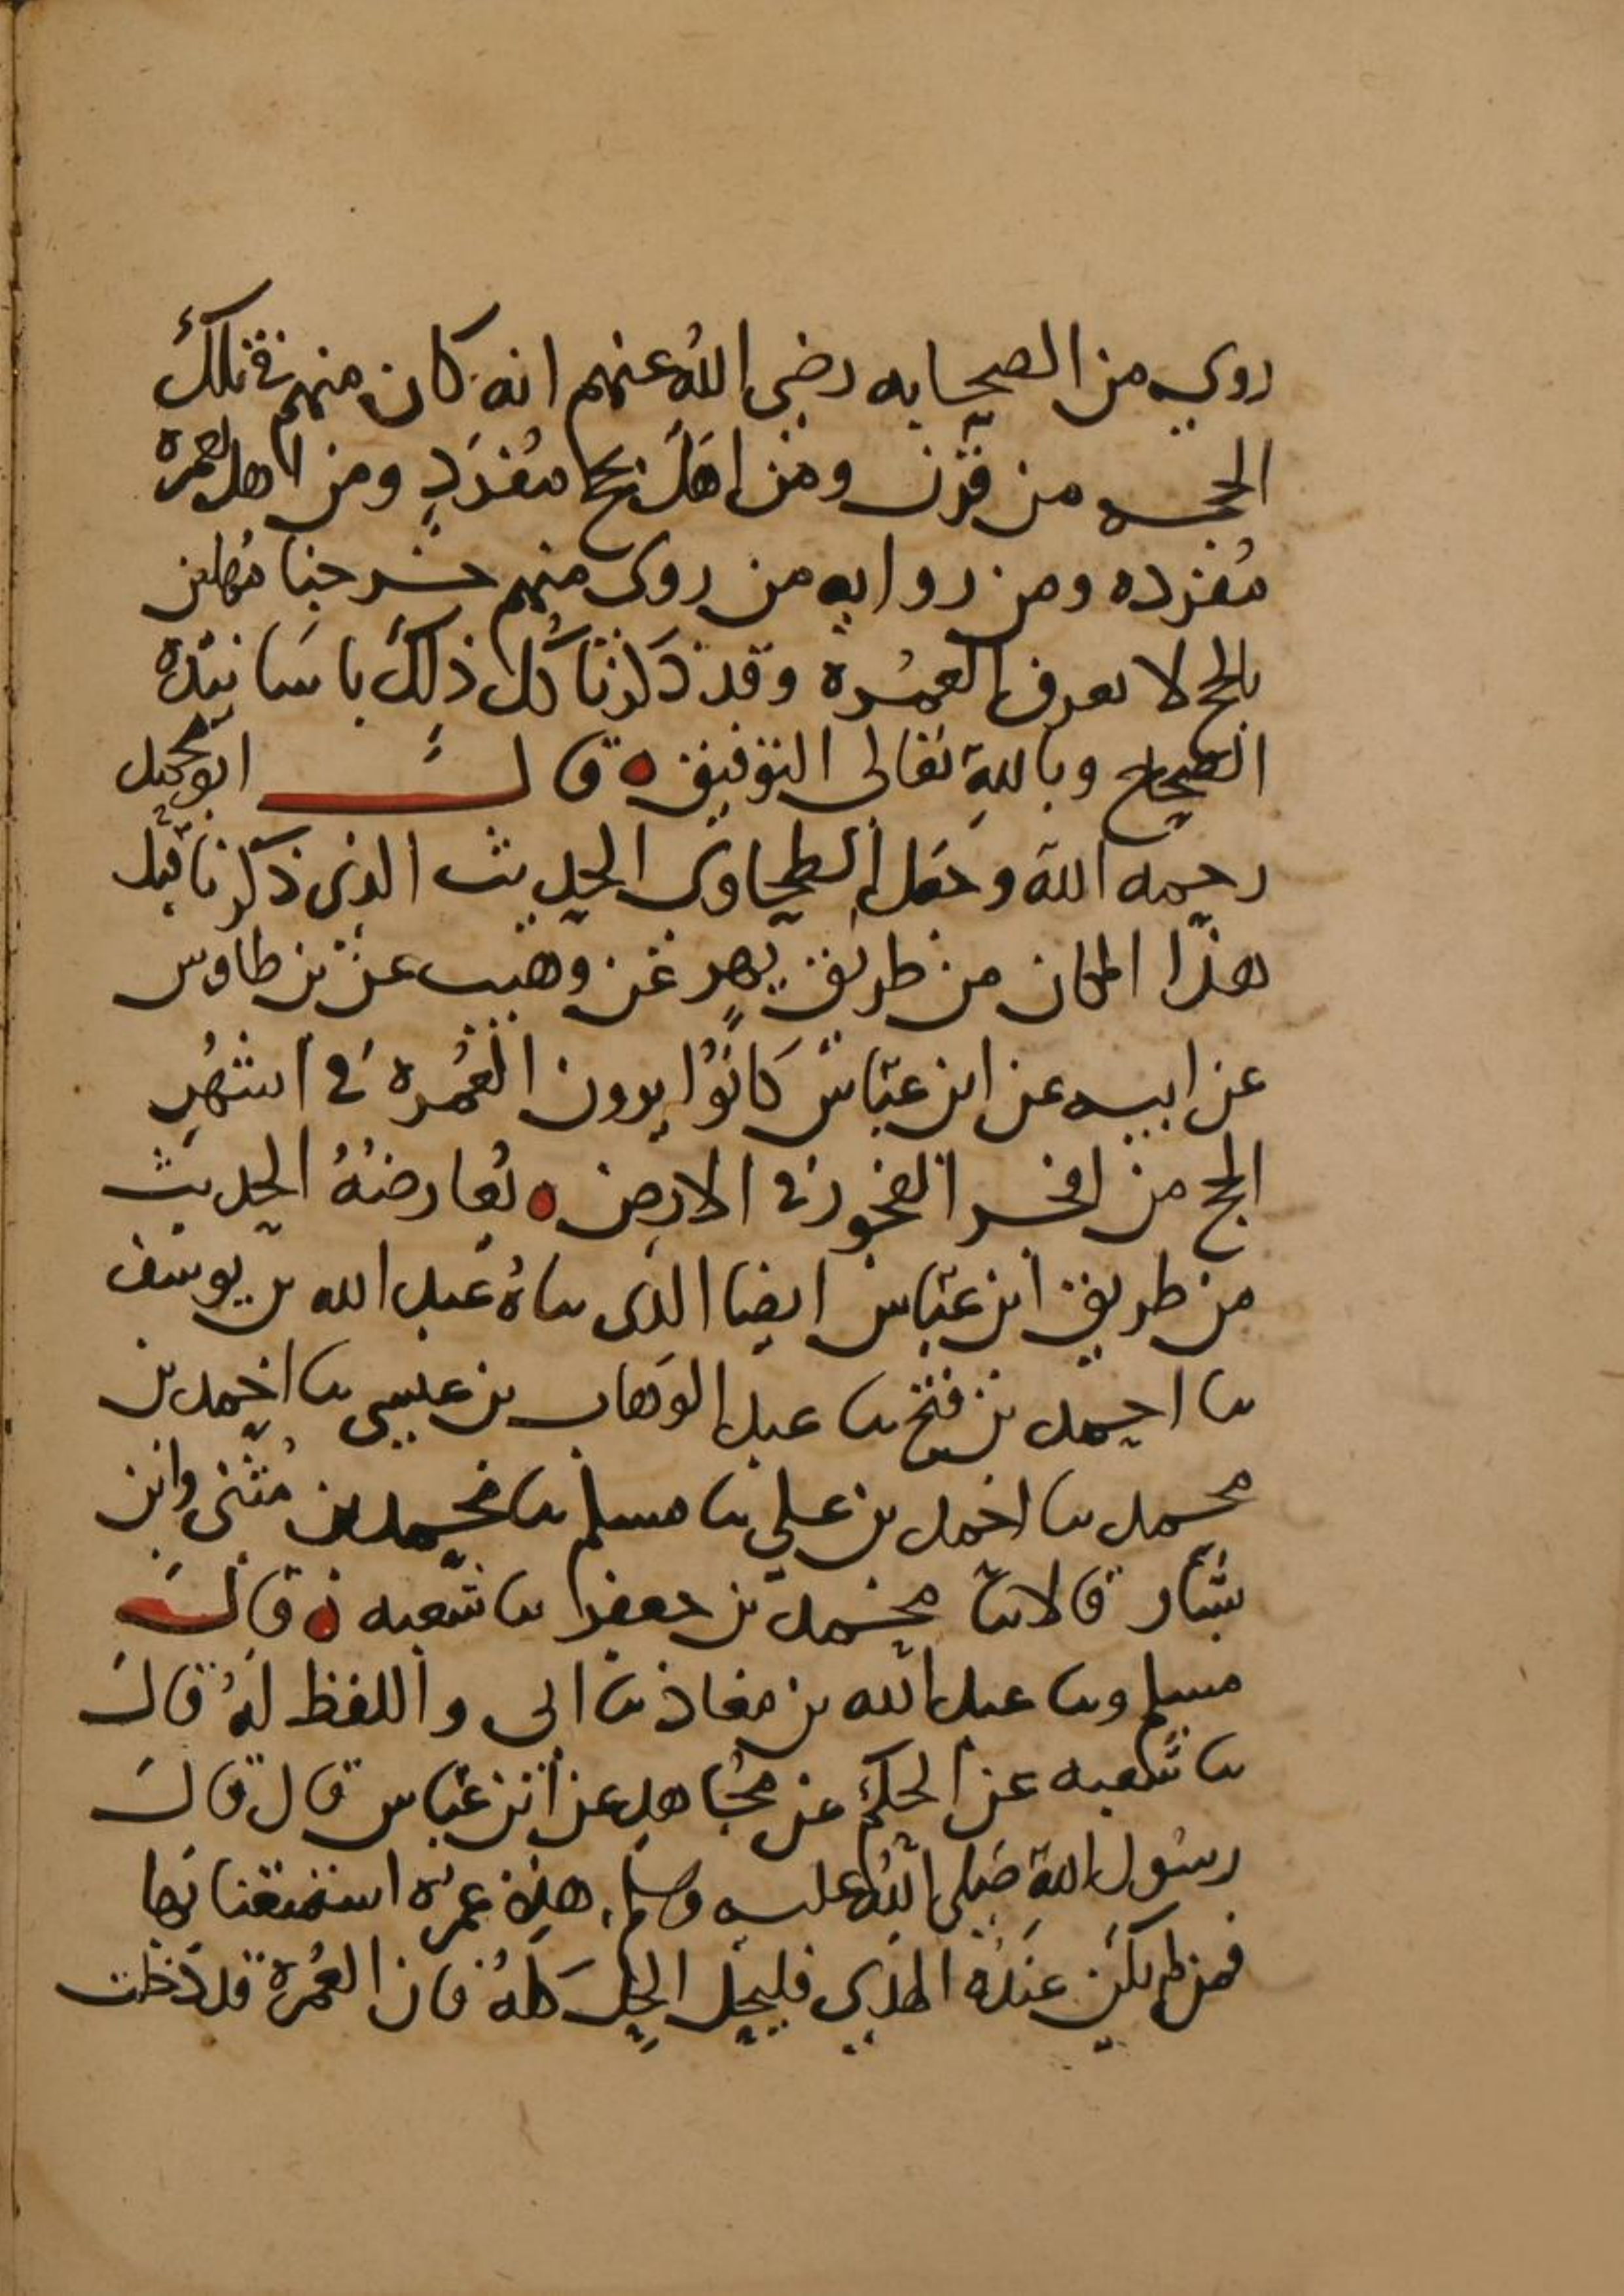 روي من الصحابه رضي الله عنهم انه كان منهم في تلك
الحجه من قرن ومن اهل بحج مفرد ومن اهل بعمرة
مفرده ومن روايه من روى منهم خرجنا مهلين
بالحج لا نعرف العمره وقد ذكرنا كل ذلك باسانيده
الصحاح وبالله تعالى التوفيق ه قال ابو محمد
رحمه الله وجعل الطحاوى الحديث الذي ذكرنا قبل
هذا المكان من طريق بهز عن وهيب عن بن طاوس
عن ابيه عن ابن عباس كانوا يرون العمره في اشهر
الحج من افجر الفجور في الارض ه تعارضه الحديث
من طريق ابن عباس ايضا الذي ساه عبد الله بن يوسف
سا احمد بن فتح سا عبد الوهاب بن عيسى سا احمد بن
محمد سا احمد بن علي سا مسلم سا محمد بن مثنى وابن
بشار قالا سا محمد بن جعفر سا شعبه ه قال
مسلم وسا عبد الله بن معاذ سا ابي واللفظ له قال
سا شعبه عن الحكم عن مجاهد عن ابن عباس قال قال
رسول الله صلى الله عليه وسلم هذه عمرة استمتعنا بها
فمن لم يكن عنده الهدي فليحل الحل كله فان العمرة قد دخلت